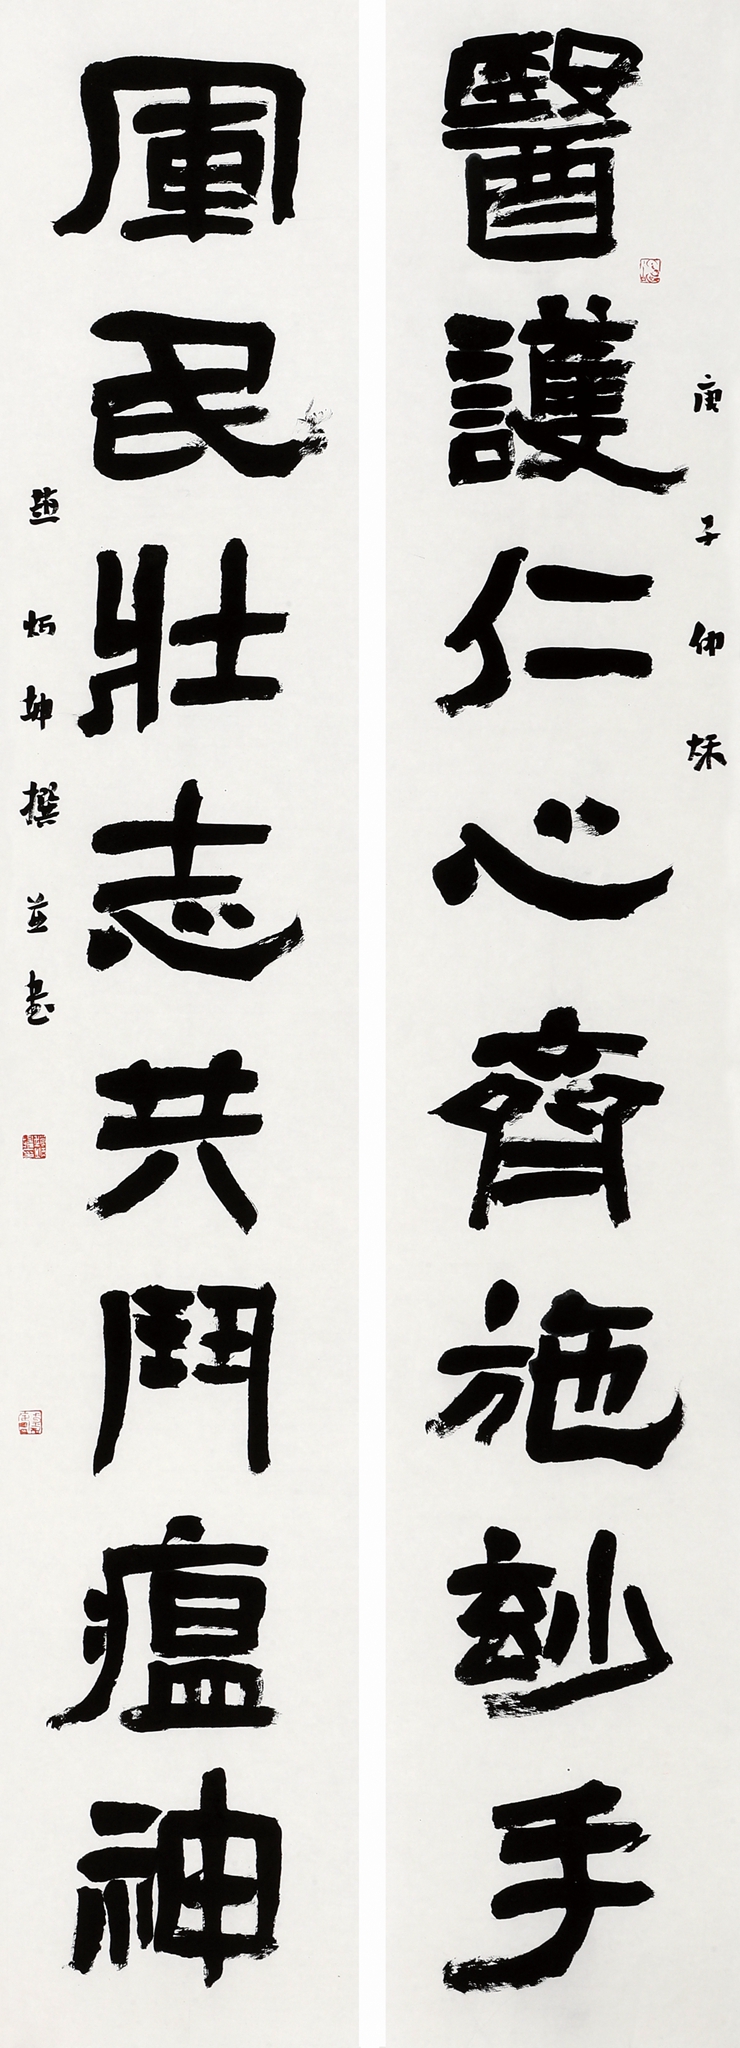 醫護仁心齊施玅手
庚子仲秌
軍民壯志共鬥瘟神
趙炳坤撰並書